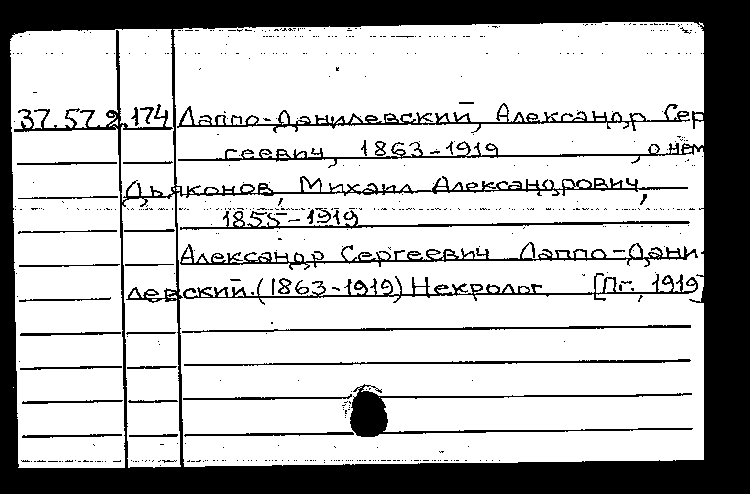 37.57.2.174 Лаппо-Данилевский, Александр Сер
геевич, 1863-1919 , о нем
Дьяконов, Михаил Александрович,
1855-1919
Александр Сергеевич Лаппо-Дани-
левский.(1863-1919) Некролог. [Пг., 1919]